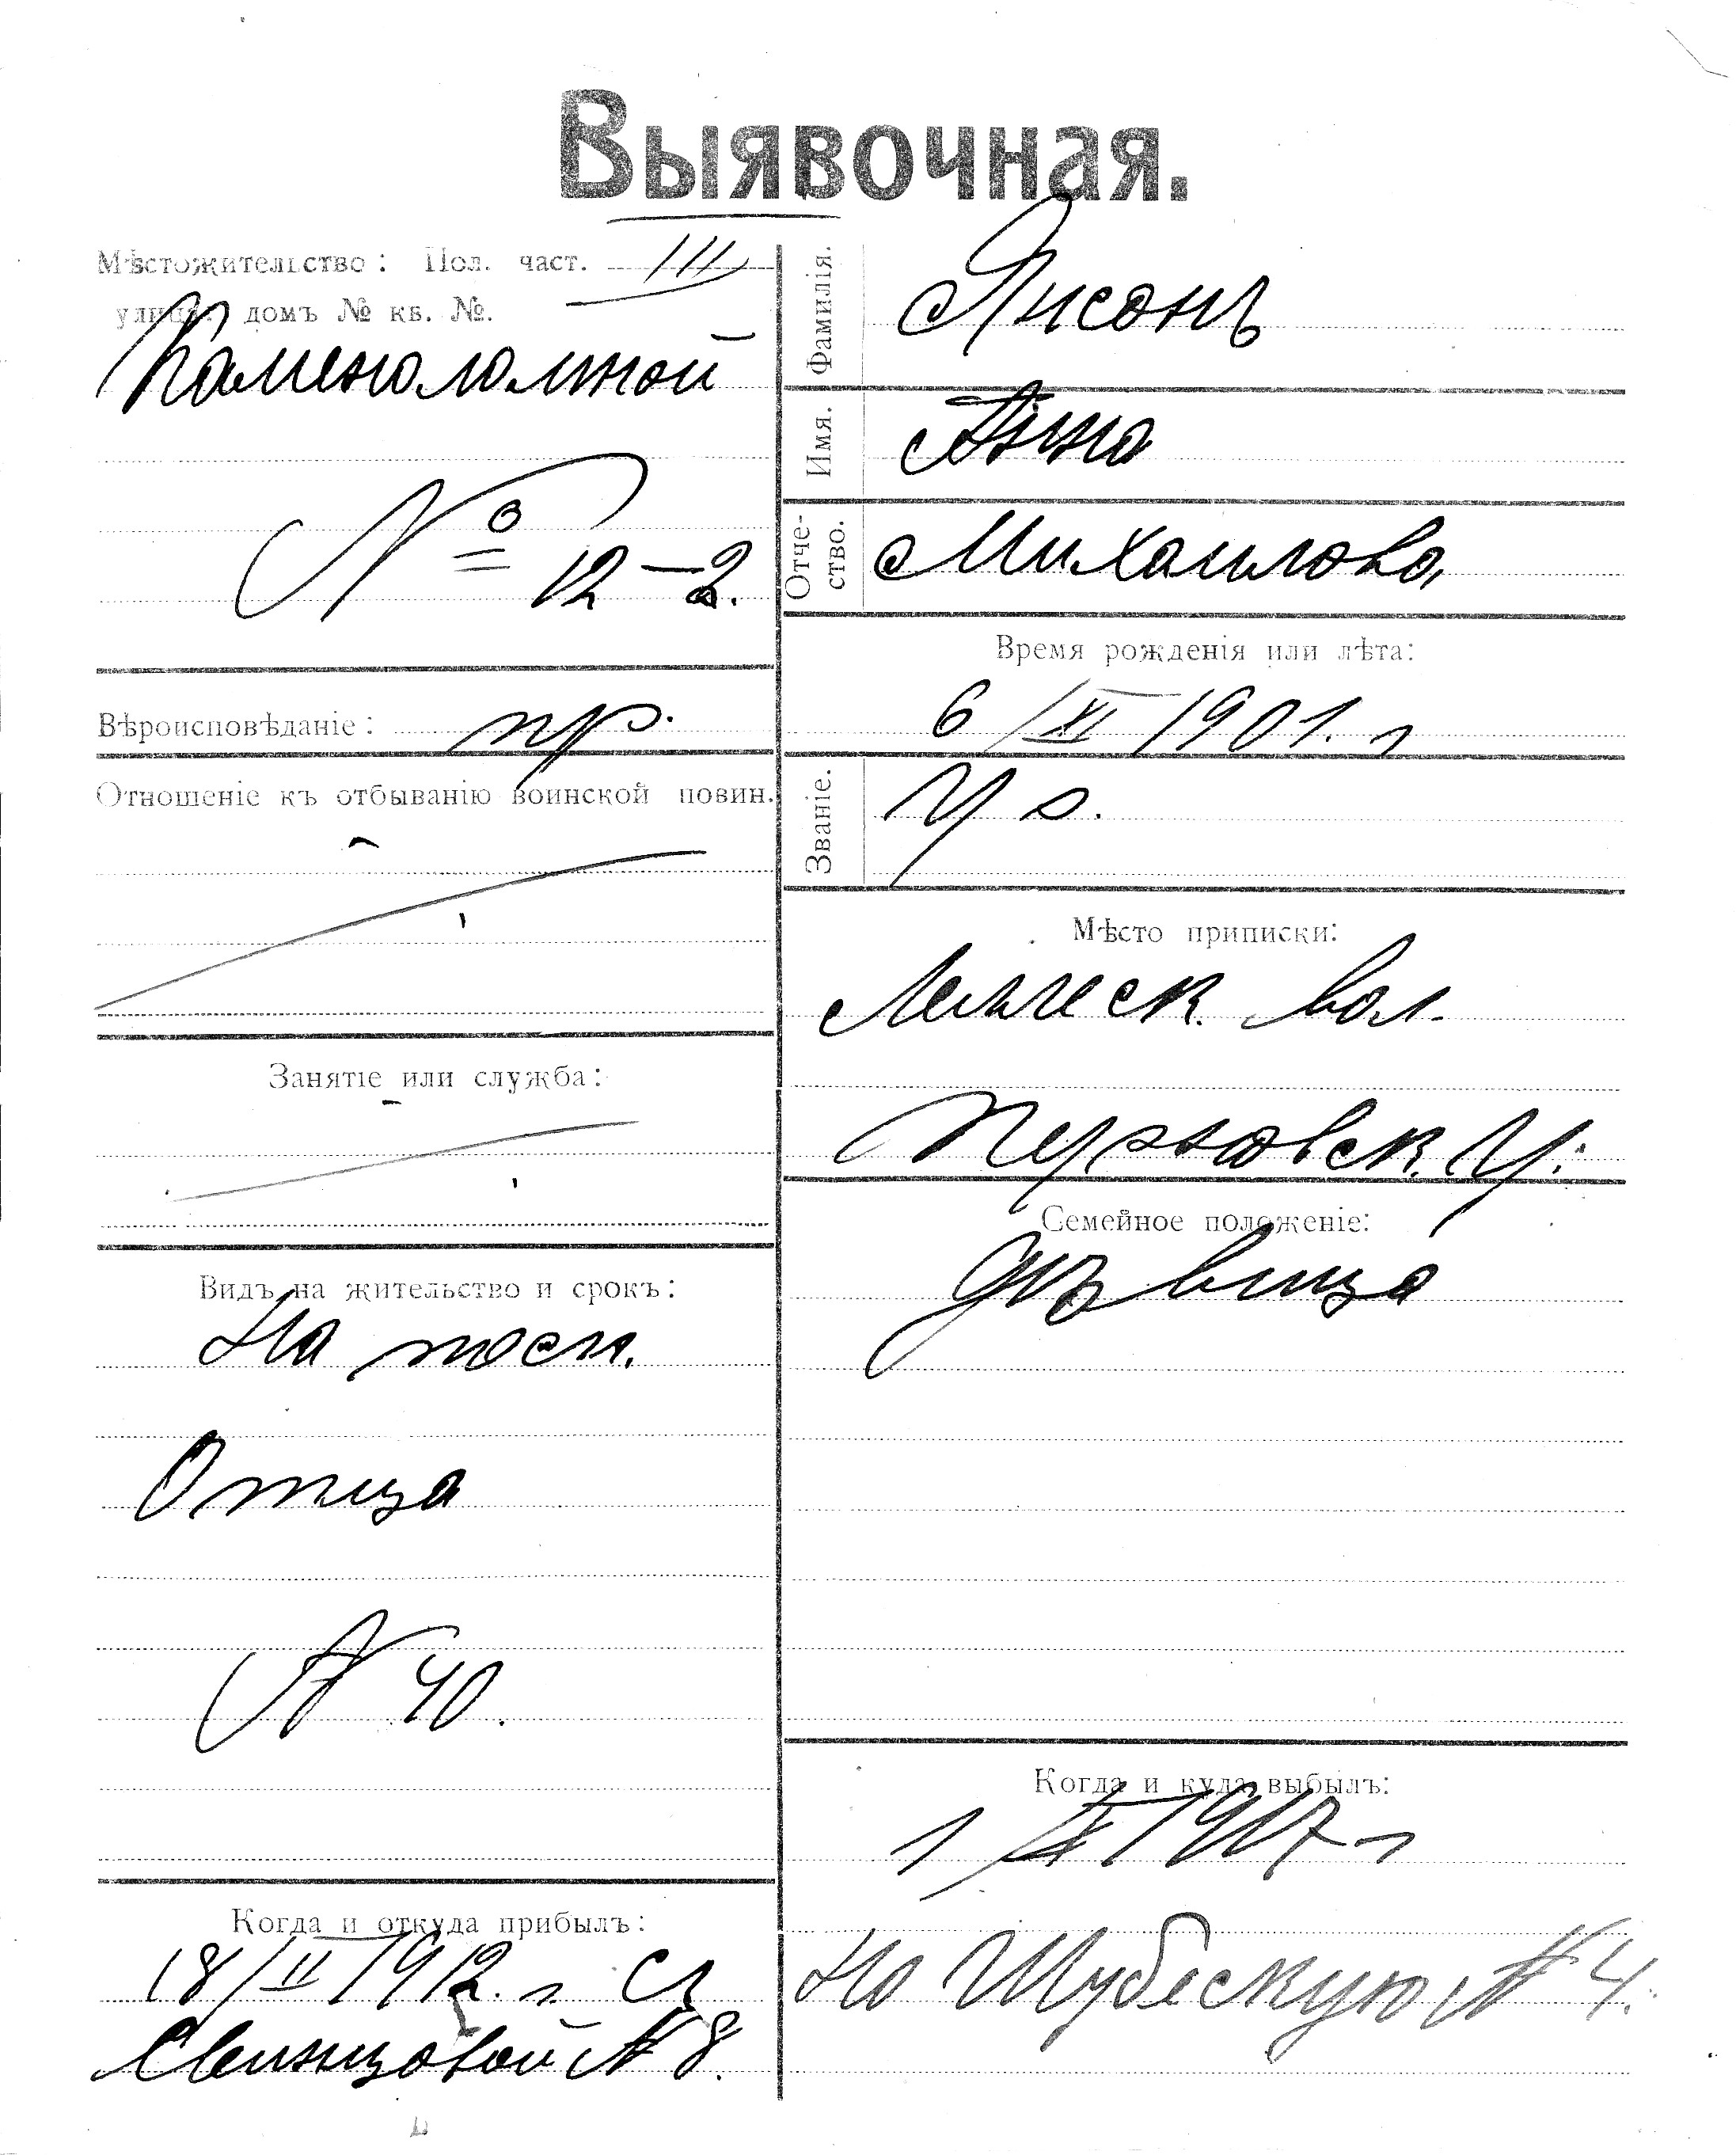 Выявочная.
Мѣстожительство: Пол. част. III
улица: домъ № кв. №.
Каменоломной
№ 12–2.
Вѣроисповѣданіе: пр.
Отношеніе къ отбыванію воинской повин.
Занятіе или служба:
Видъ на жительство и срокъ:
На посл.
Отца
№ 40.
Когда и откуда прибылъ:
18/II 1912. г. Съ
Свинцовой № 8.
Фамилія. Янсонъ
Имя. Анна
Отче-
ство. Михайлова
Время рожденія или лѣта:
6/XI 1901. г
Званіе. Кр.
Мѣсто приписки:
вол.
Перновск. у.
Семейное положеніе:
дѣвица
Когда и куда выбылъ:
1 1917 г
на № 4.